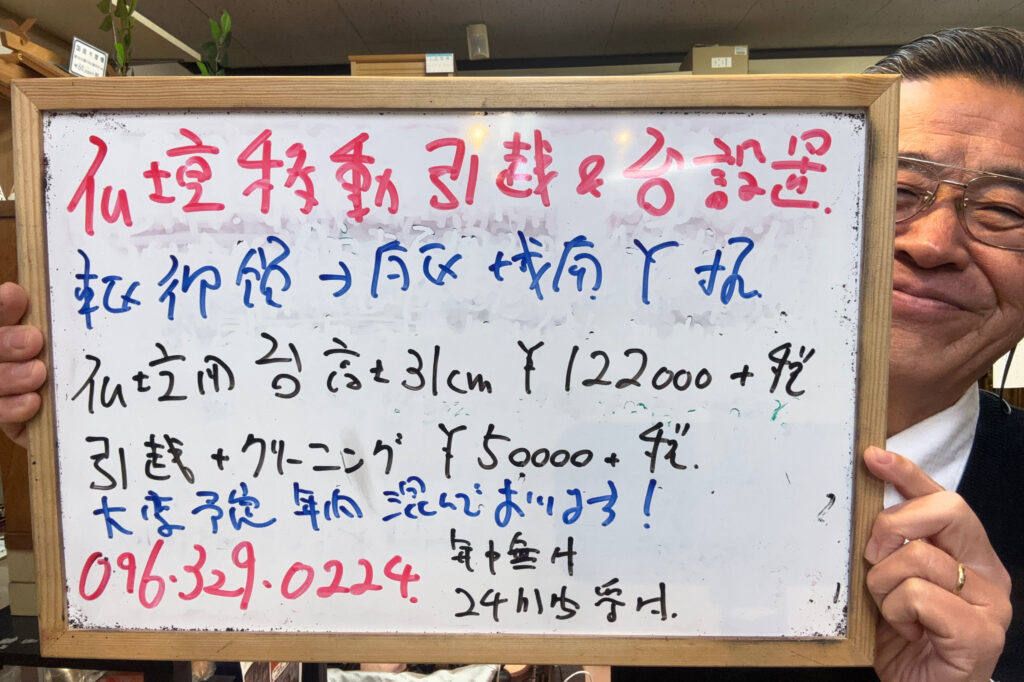 仏壇移動引越&台設置.
東区御領→南区城南Y様.
仏壇用 台 高さ31cm ¥122000+税
引越+クリーニング ¥50000+税.
大変予定 年内 混んでおります!
096.329.0224.
年中無休
24時間受付.